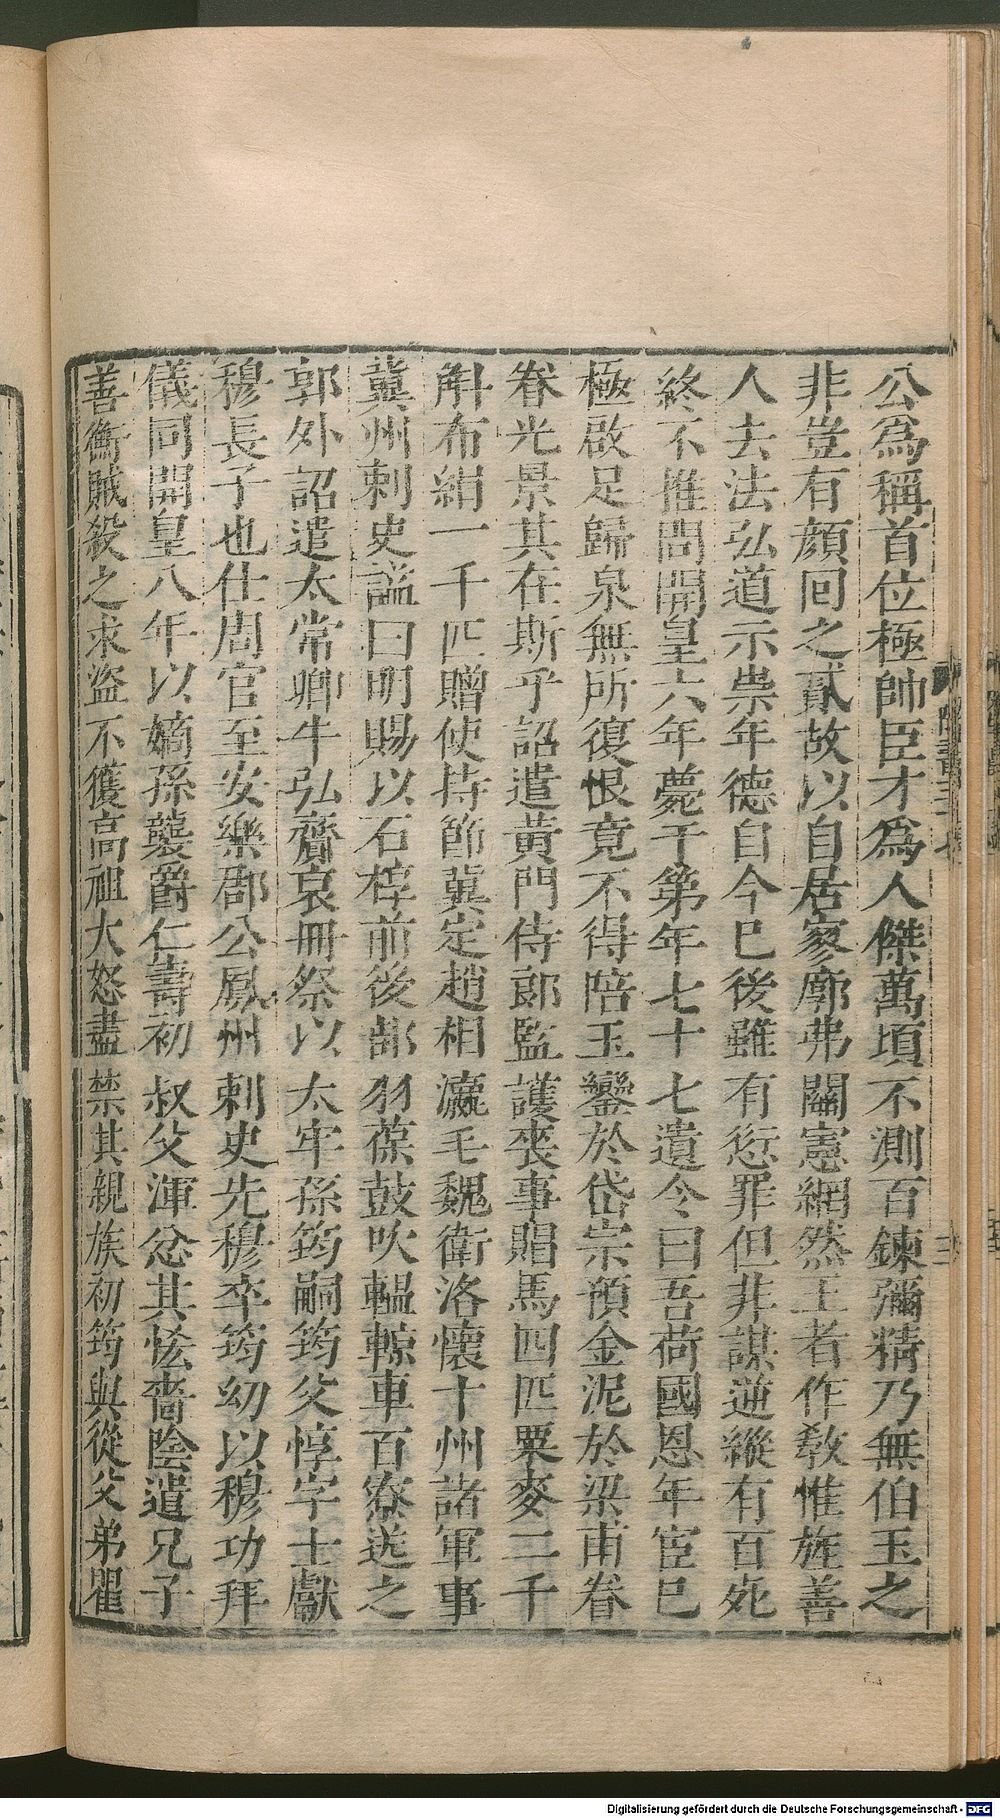 公爲稱首位極帥臣才爲人傑萬頃不測百鍊彌精乃無伯玉之
非豈有顔回之貳故以自居寥廓弗關憲網然王者作敎惟旌善
人去法弘道示崇年德自今已後雖有愆罪但非謀逆縱有百死
終不推問開皇六年薨于第年七十七遺令曰吾荷國恩年宦已
極啟足歸泉無所復恨竟不得陪玉鑾於岱宗預金泥於梁甫眷
眷光景其在斯乎詔遣黃門侍郎監護喪事賵馬四匹粟麥二千
斛布絹一千匹贈使持節冀定趙相瀛毛魏衛洛懷十州諸軍事
冀州刺史謚曰明賜以石槨前後部羽葆鼓吹轀輬車百寮送之
郭外詔遣太常卿牛弘齎哀冊祭以太牢孫筠嗣筠父惇字士獻
穆長子也仕周官至安樂郡公鳳州刺史先穆卒筠幼以穆功拜
儀同開皇八年以嫡孫襲爵仁壽初叔父渾忿其恡嗇陰遣兄子
善衡賊殺之求盜不獲高祖大怒盡禁其親族初筠與從父弟瞿
隋書三十七
Digitalisierung gefördert durch die Deutsche Forschungsgemeinschaft - DFG